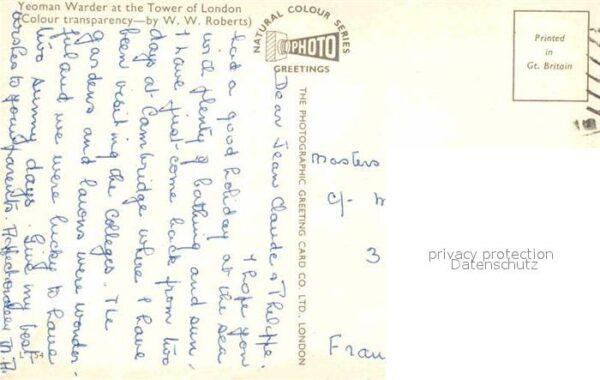 Yeoman Warder at the Tower of London
(Colour transparency—by W. W. Roberts)
NATURAL COLOUR SERIES
PHOTO
GREETINGS
THE PHOTOGRAPHIC GREETING CARD CO. LTD., LONDON
Printed
in
Gt. Britain
Dear Jean Claude & Philippe,
I hope you
had a good holiday at the sea
with plenty of bathing and sun.
I have just come back from two
days at Cambridge where I have
been visiting the Colleges. The
gardens and lawns were wonder-
ful and we were lucky to have
two sunny days. Give my best
wishes to your parents.
Masters
c/-
3
Fran
privacy protection
Datenschutz